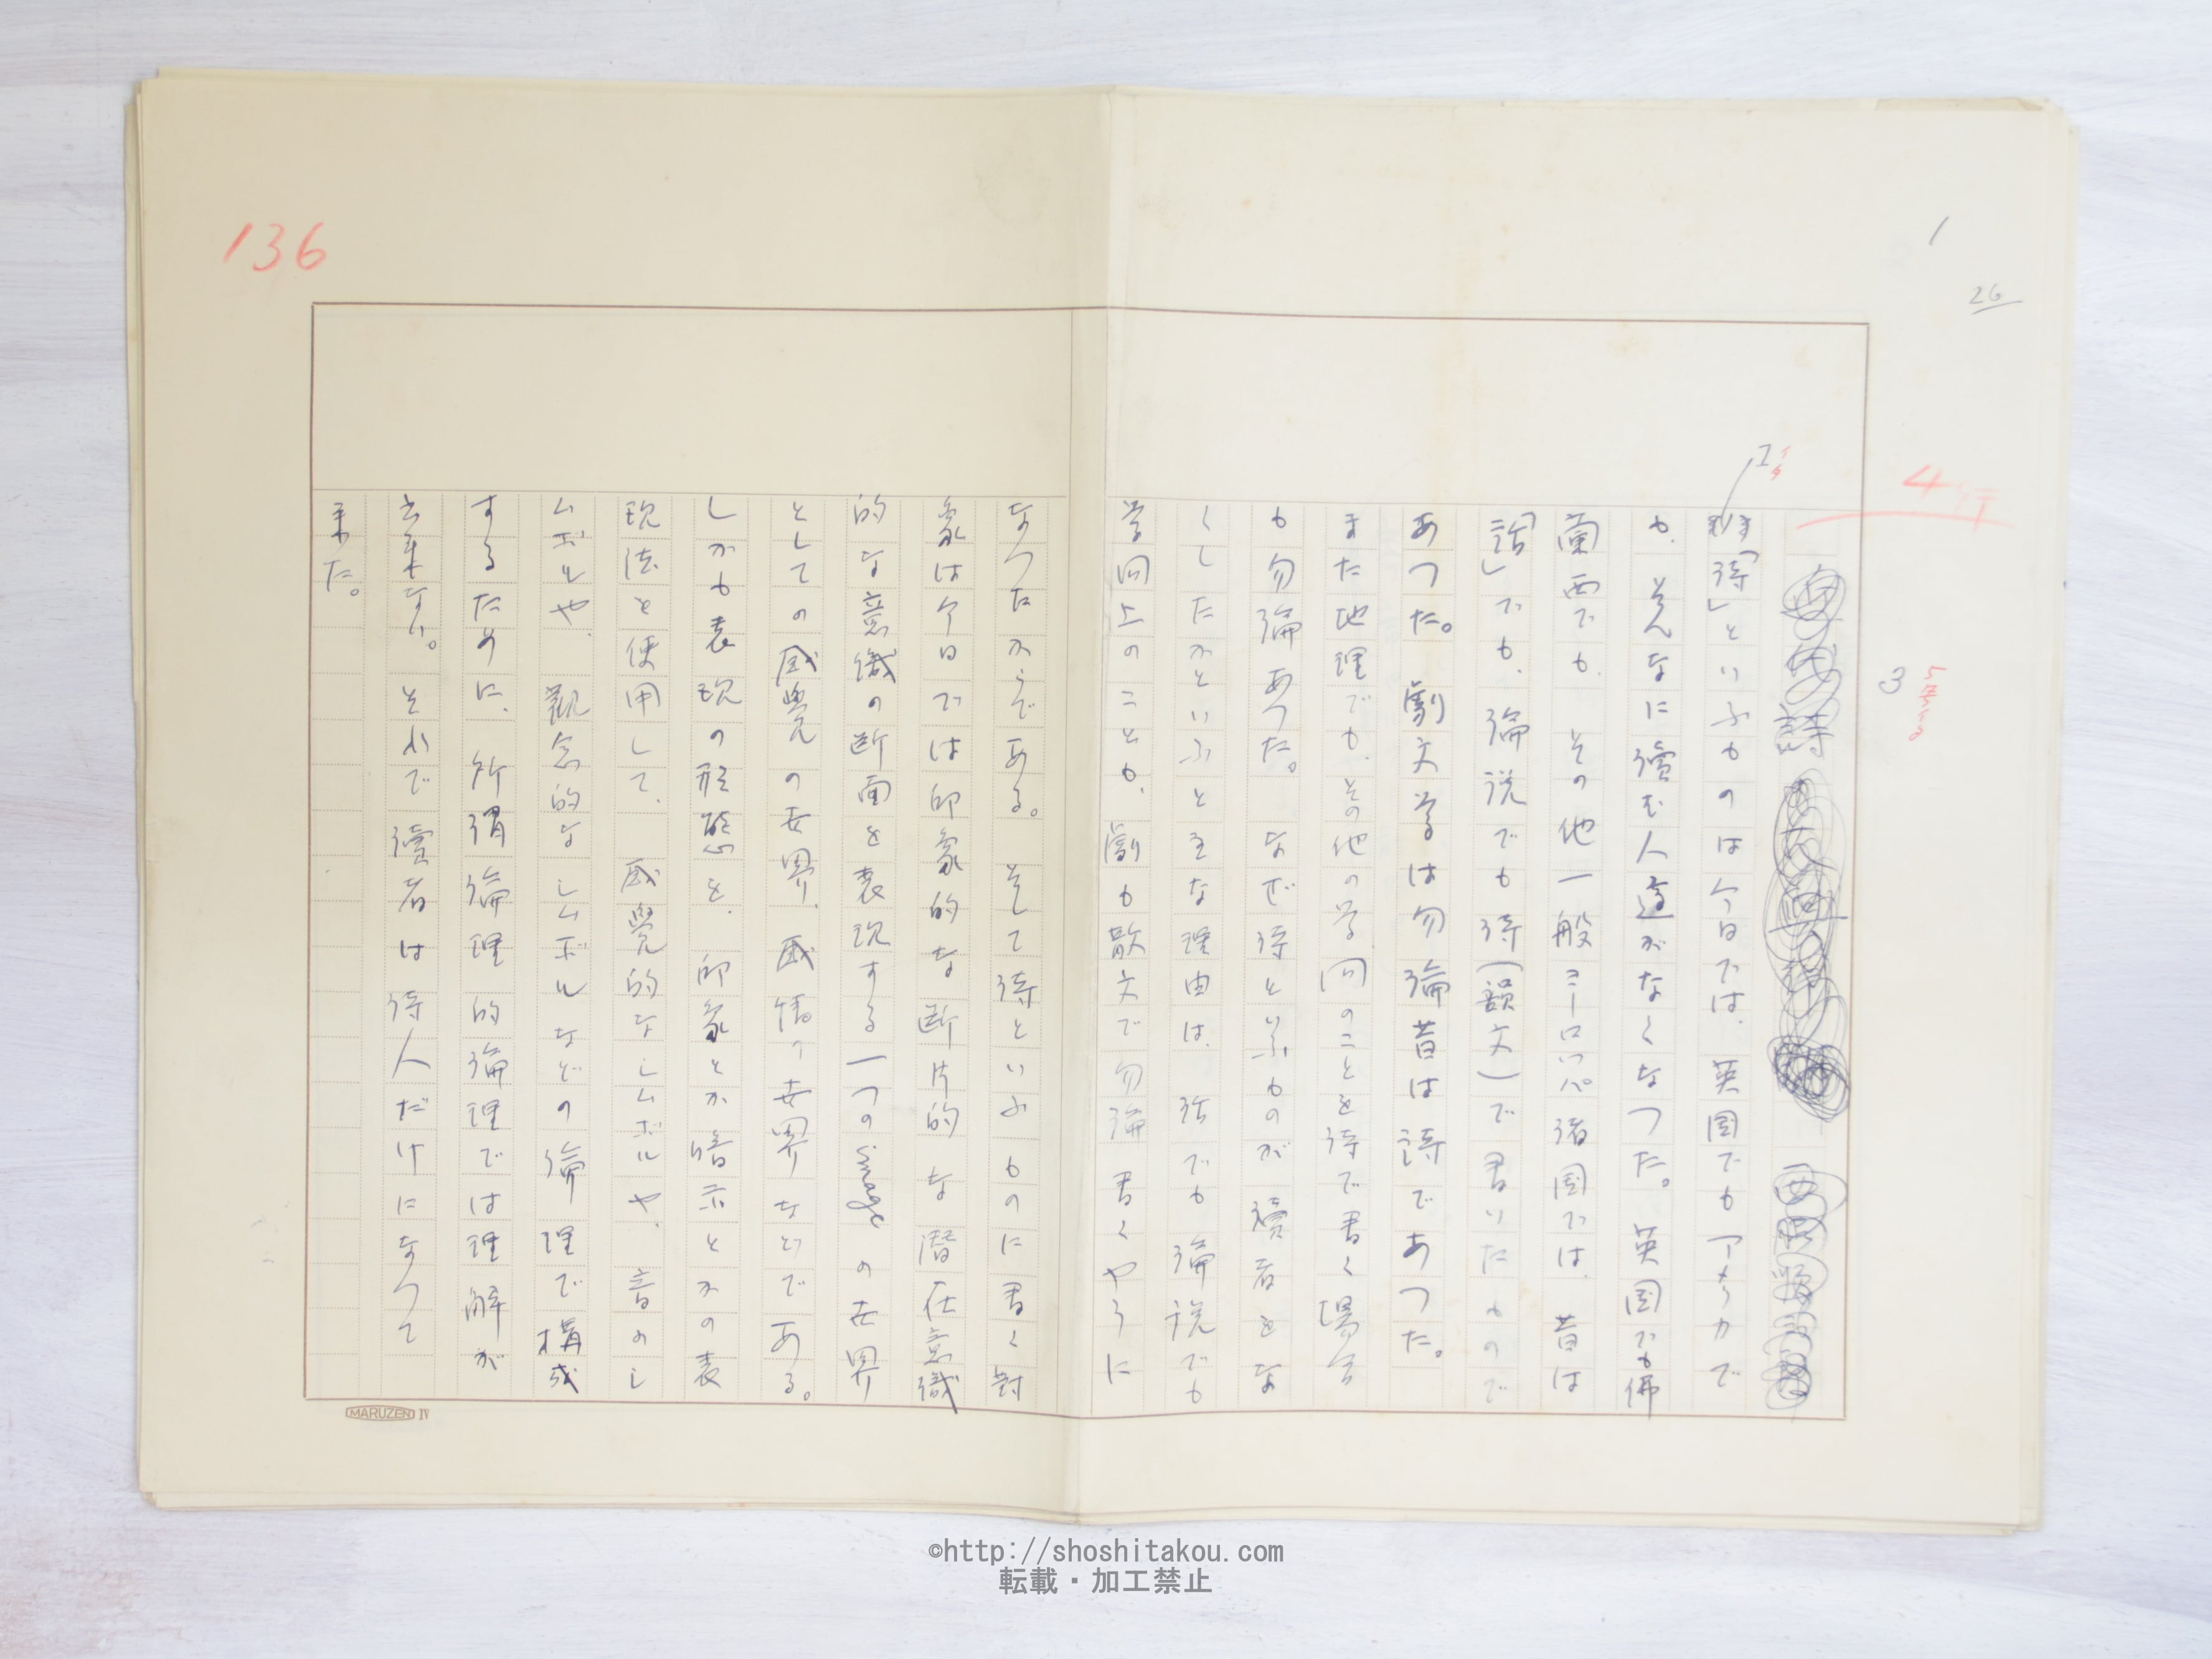 1
26
136
4行
3
5号
I
詩
「詩」といふものは今日では、英国でもアメリカで
も、そんなに讀む人達がなくなつた。英国でも佛
蘭西でも、その他一般ヨーロッパ諸国では、昔は
「話」でも、論説でも詩(韻文)で書いたもので
あつた。劇文学は勿論昔は詩であつた。
また地理でも、その他の学問のことを詩で書く場合
も勿論あつた。なぜ詩といふものが讀者をな
くしたかといふと主な理由は、話でも論説でも
学問上のことも、劇も散文で勿論書くやうに
なつたからである。そして詩といふものに書く對
象は今日では印象的な断片的な潜在意識
的な意識の断面を表現する一つのimageの世界
としての感覺の世界、感情の世界などである。
しかも表現の形態を、印象とか暗示とかの表
現法を使用して、感覺的なシムボルや、音のシ
ムボルや、觀念的なシムボルなどの論理で構成
するために、所謂論理的論理では理解が
出来ない。それで讀者は詩人だけになつて
来た。
MARUZEN IV
©http://shoshitakou.com
転載・加工禁止